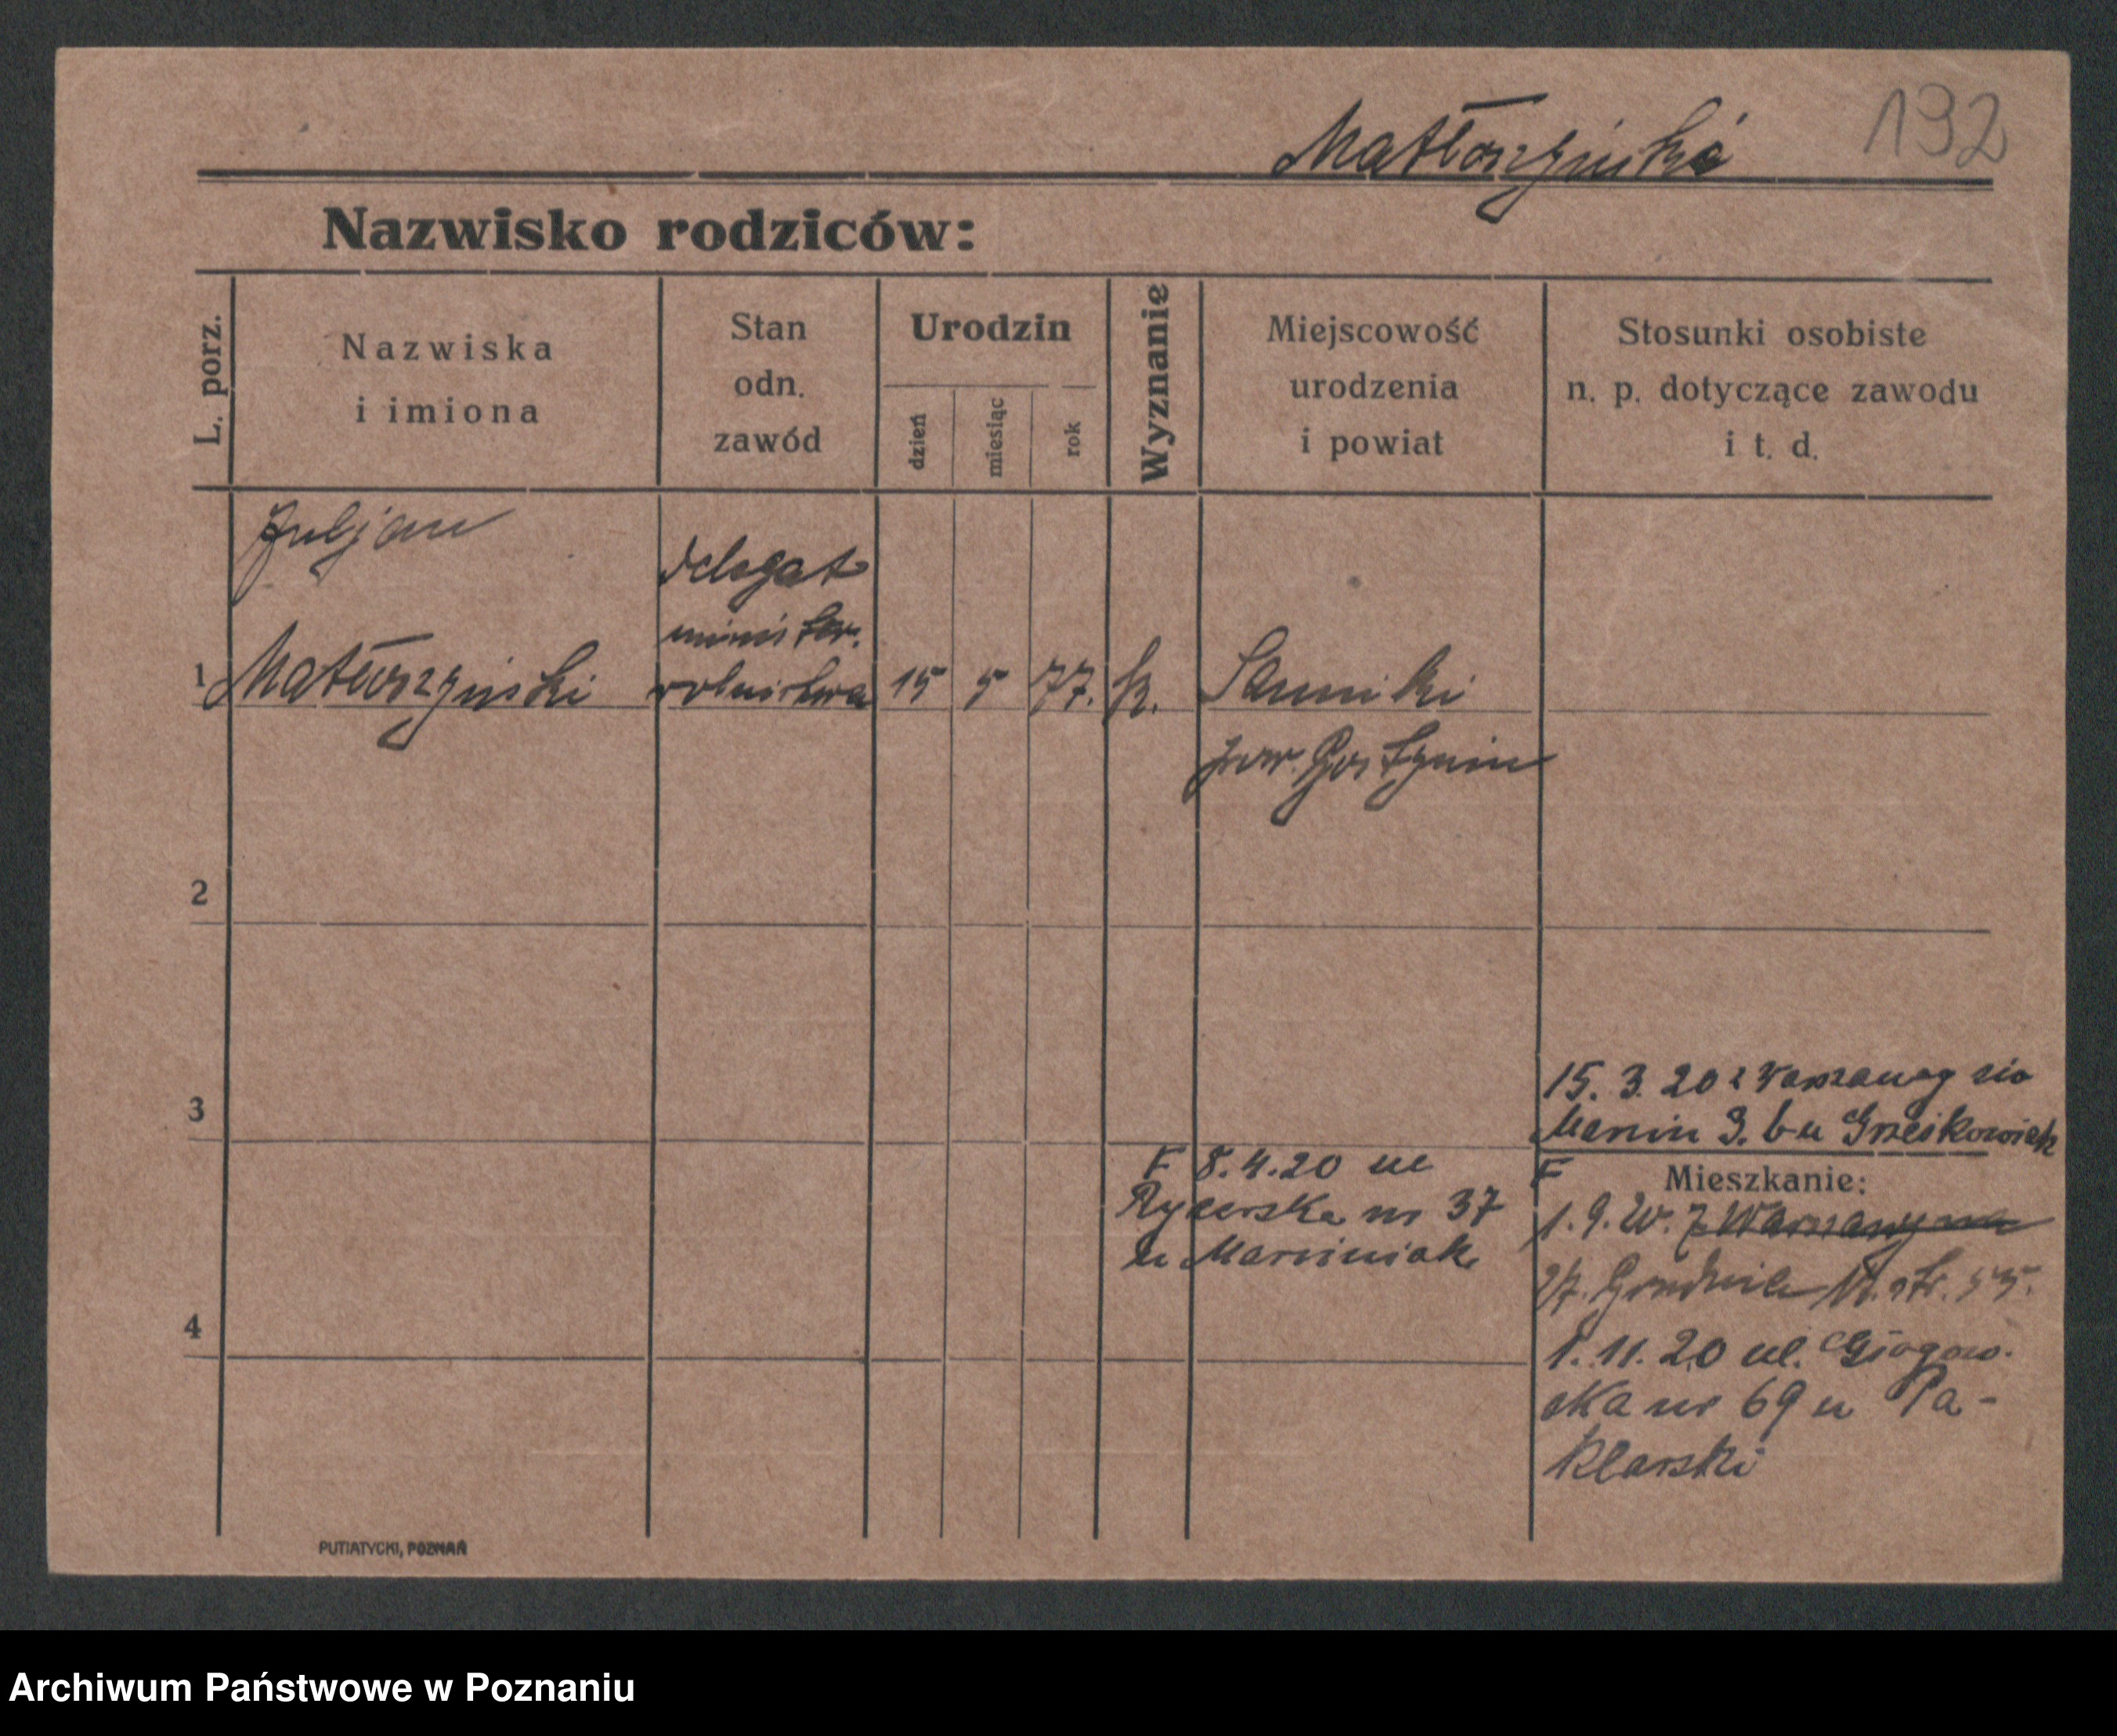 Matłoszyński
192
Nazwisko rodziców:
L. porz.
Nazwiska
i imiona
Stan
odn.
zawód
Urodzin
dzień
miesiąc
rok
Wyznanie
Miejscowość
urodzenia
i powiat
Stosunki osobiste
n. p. dotyczące zawodu
i t. d.
Juljan
delegat
minister.
1 Matłoszyński rolnictwa 15 5 77. k. Sanniki
pow. Gostynin
2
15. 3. 20 z Warszawy
3
Marcin 3. b u Grześkowiak
F 8. 4. 20 ul
Rycerska nr 37
u Marciniak
F
Mieszkanie:
1. 9. 20. z Warszawy na
Grudzieniec 55.
4
1. 11. 20 ul. Głogow.
ska nr 69 u Pa-
klarski
PUTIATYCKI, POZNAŃ
Archiwum Państwowe w Poznaniu